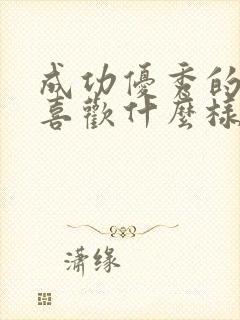 成功優秀的
喜歡什麼樣
潇缘